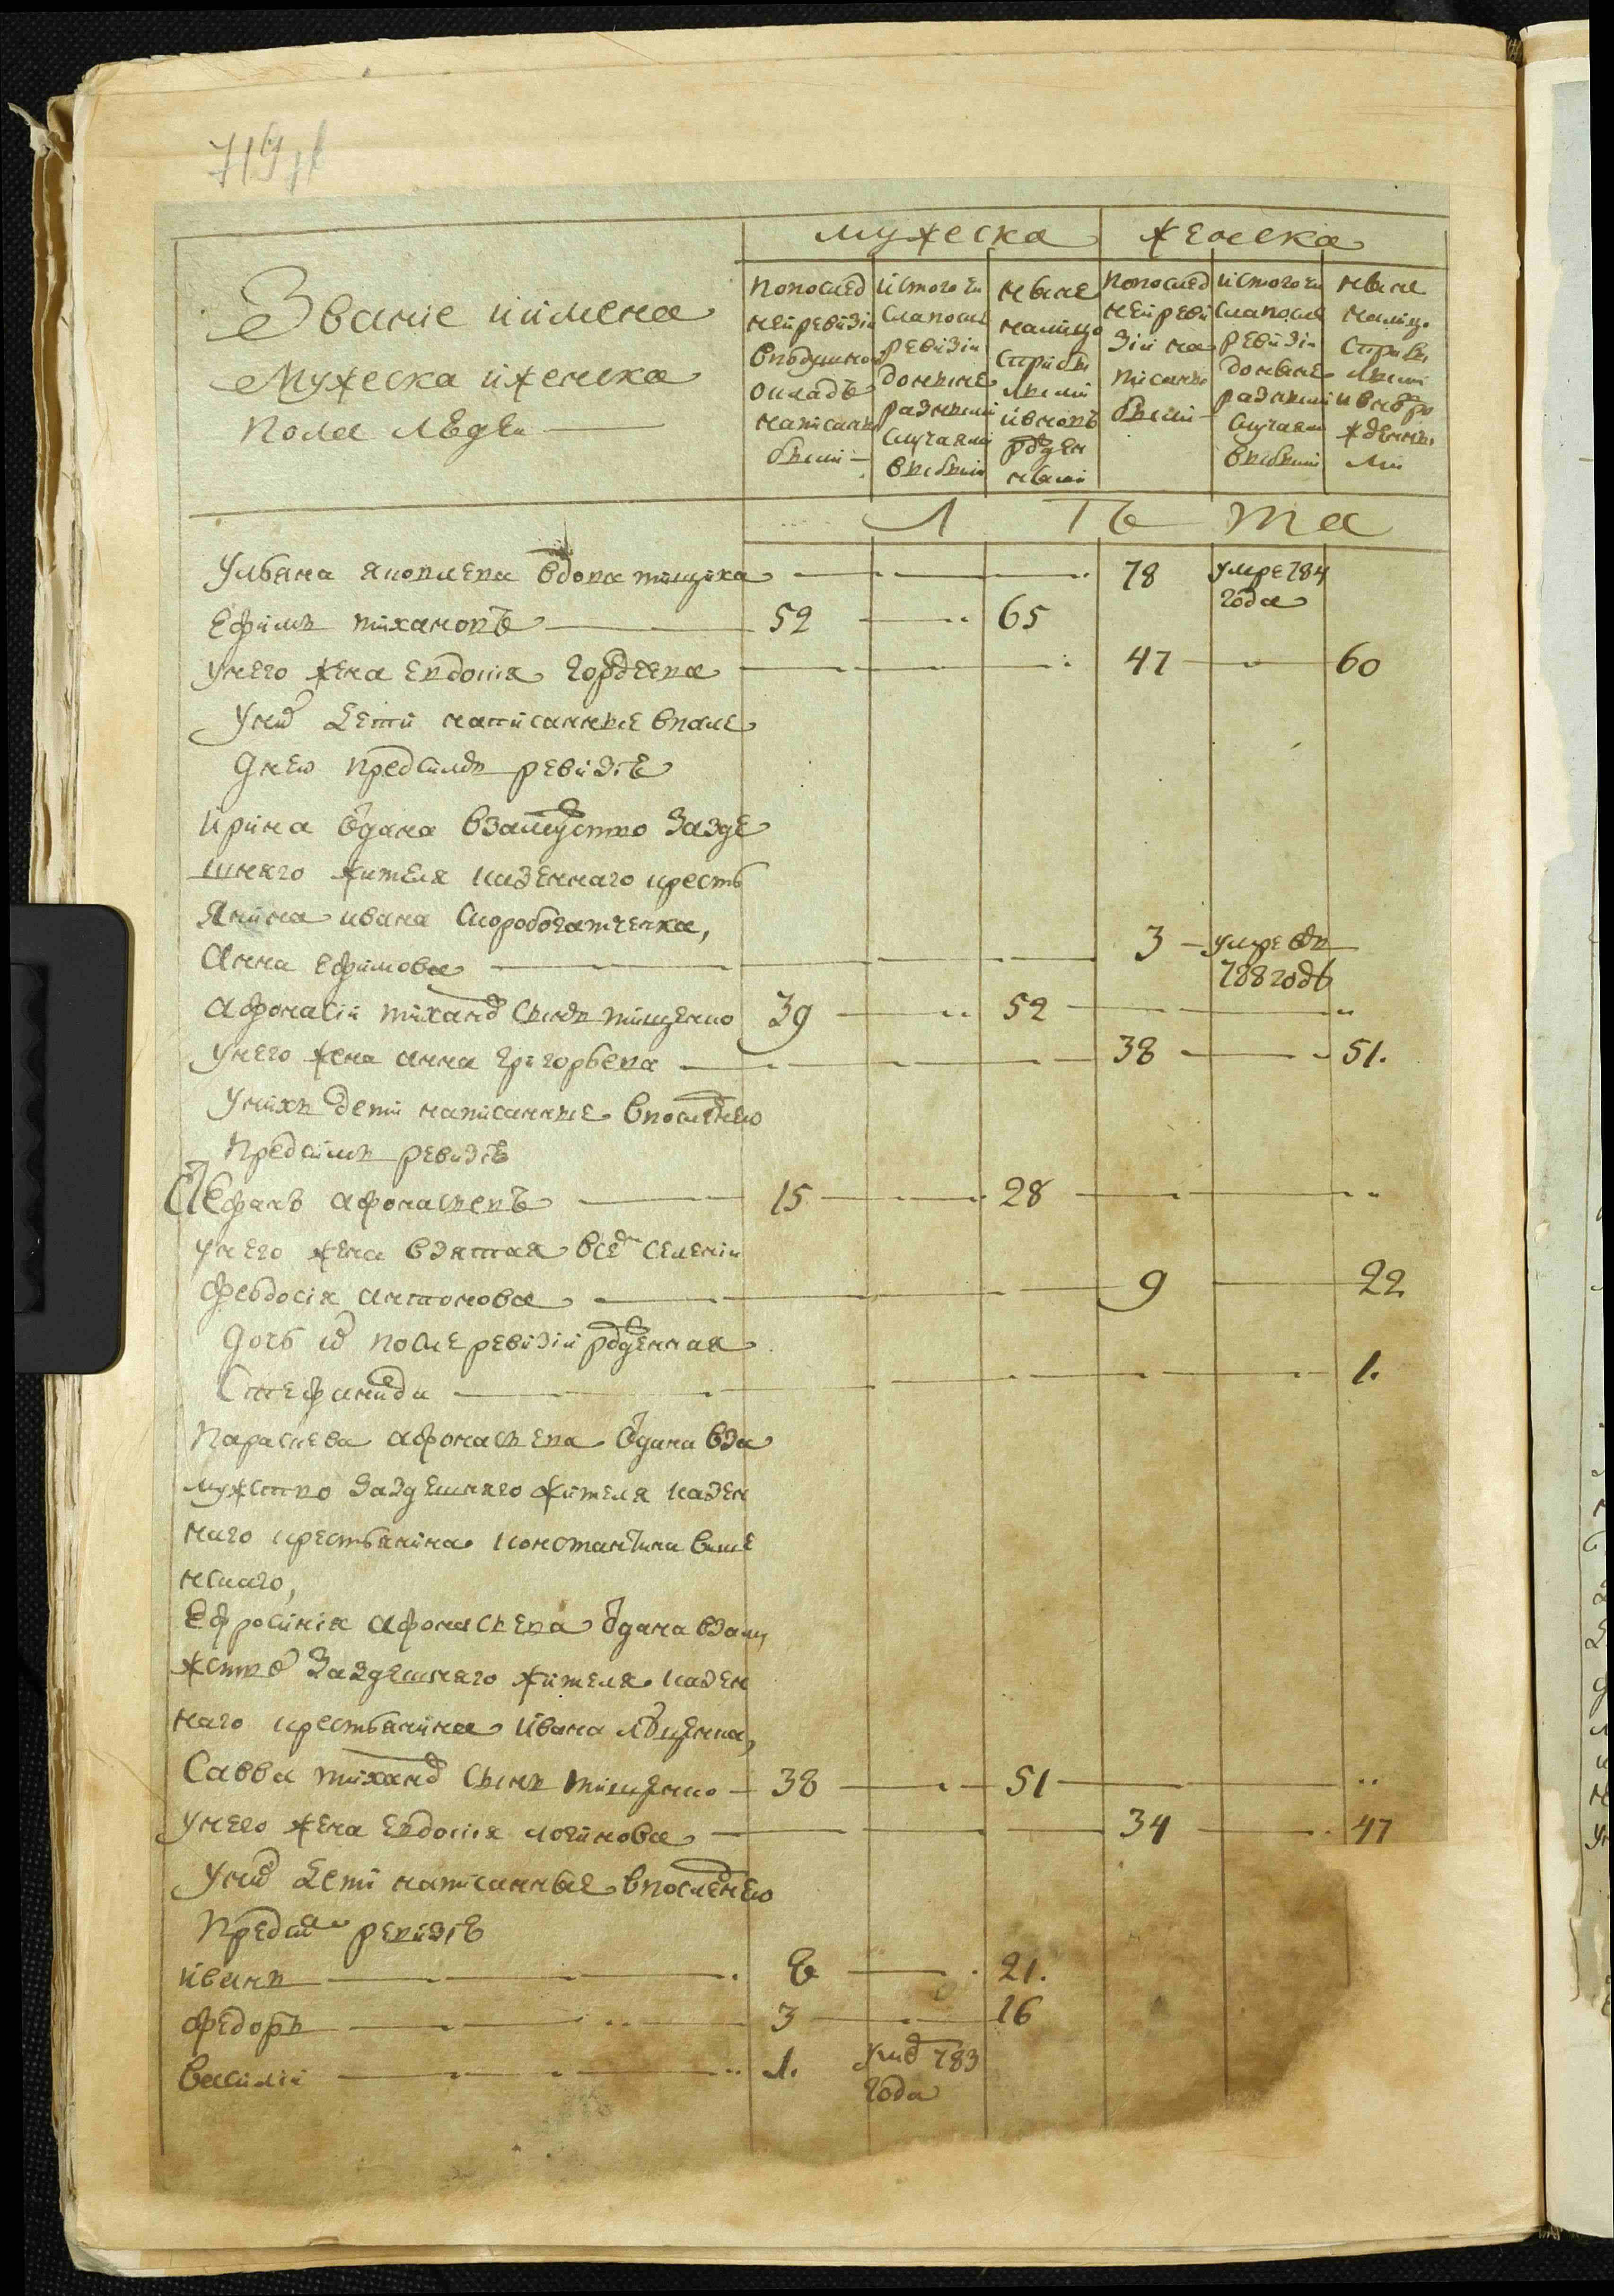 мужеска женска
Званіе иимена
Мужеска иженска
пола людеи
попослед
неиревизіи
вподушном
окладѣ
написаны
были
Истого чи
сла после
ревизіи
доныне
разными
случаями
выбыли
Ныне
налицо
Сприбы
лыми
ивновь
рожден
ными
попослед
неиреви
зіи на
писаны
были
Истого чи
сла после
ревизіи
доныне
разными
случаями
выбыли
Ныне
налицо
Сприбы
лыми
ивновро
жденны
ми
Л Ѣ та
Ульяна яковлева вдова тищиха 78 умре 784
года
Ефимъ тихановъ 52 65
унего жена евдокия гордеева 47 60
Уних дети написанные впосле
днею предсимъ ревизіѣ
Ирина отдана взамужство зазде
шняго жителя казеннаго кресть
янина ивана скоробогатченка,
Анна ефимова 3 умре въ
788 годѣ
Афонасіи тиханов сынъ тищенко 39 52
унего жена анна григорьева 38 51.
Унихъ дети написанные впоследнею
предсимъ ревизіѣ
Стефанъ афонасьевъ 15 28
унего жена взятая всем селеніи
феодосія антонова 9 22
дочь их после ревизіи рожденная
Стефанида 1.
параскева афонасьева отдана вза
мужство заздешняго жителя казен
наго крестьянина константина више
нскаго,
Ефросинія афонасьева отдана взаму
жство заздешняго жителя казен
наго крестьянина ивана
Савва тиханов сынъ тищенко 38 51
унего жена евдокия логинова 34 47
Уних дети написанные впоследнею
предсим ревизіѣ
иванъ 8 21.
федоръ 3 16
василіи 1. умре 783
года